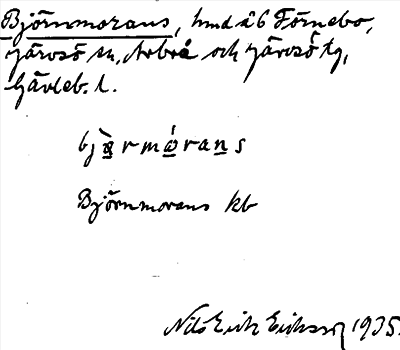 Björnmorans, hmd å 6 Förnebo,
Järvsö sn, Arbrå och Järvsö tg,
Gävleb. l.
bjɷ̀rmɷ́rans
Björnmorans kb
Nils Erik Eriksson 1935